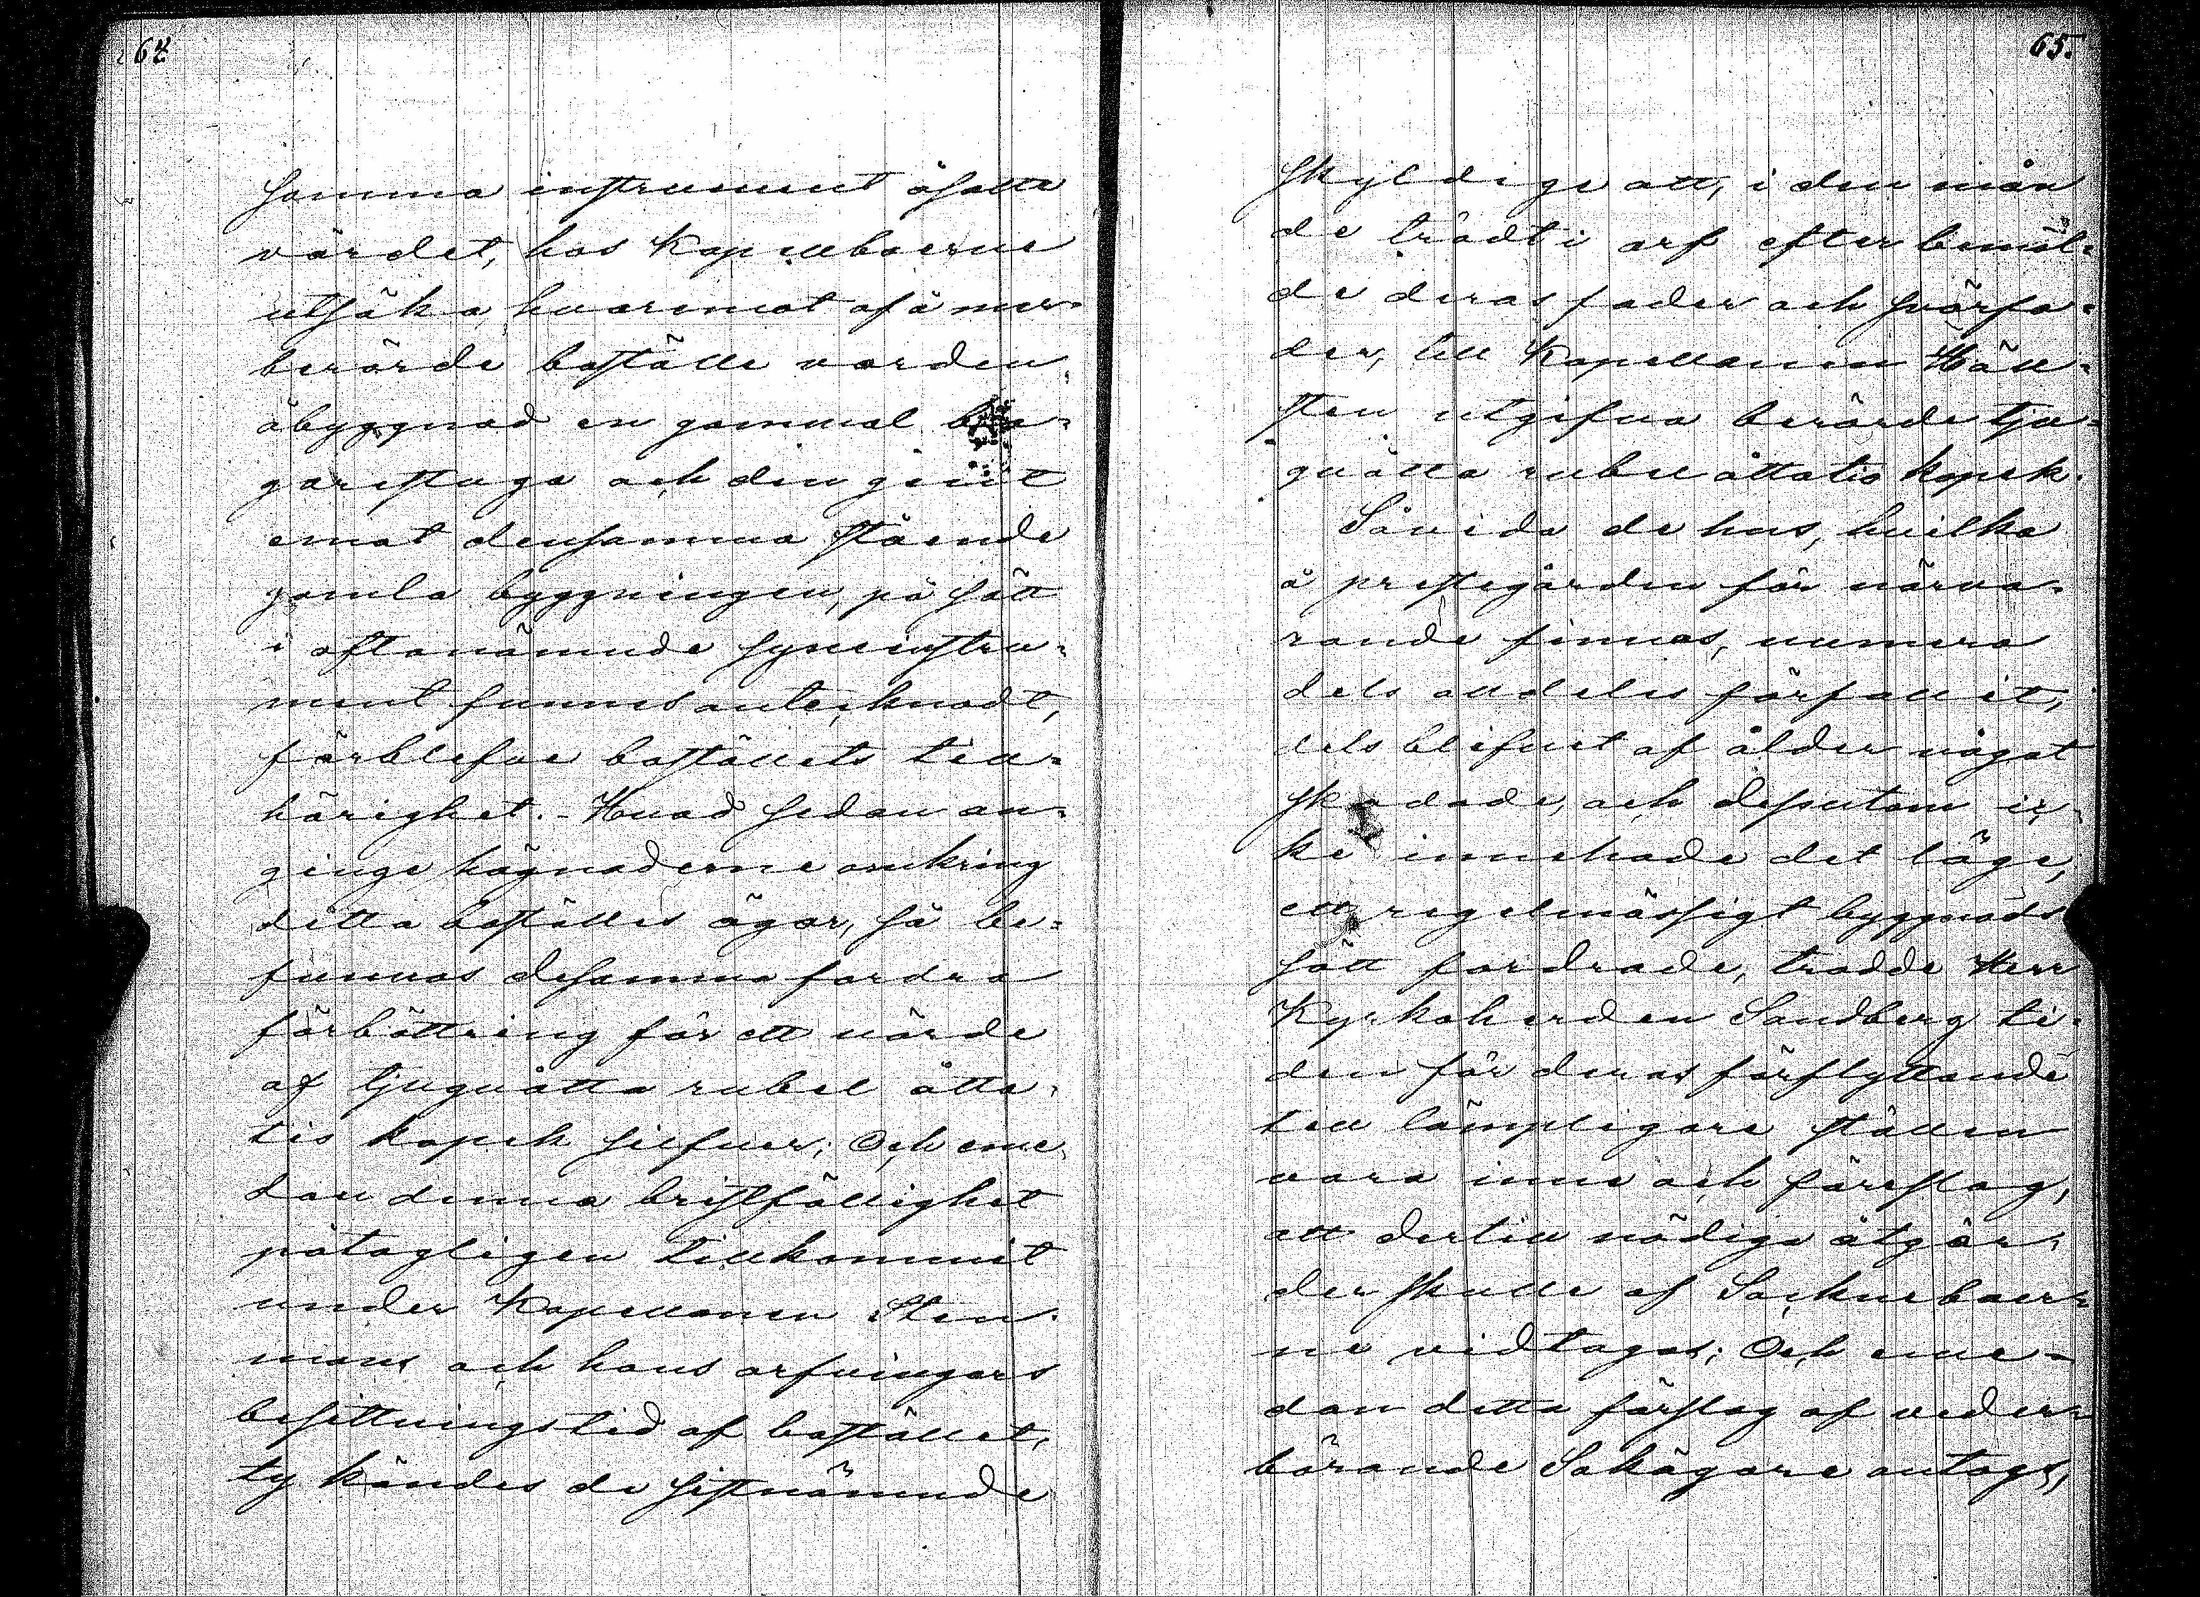 64
samma instrument åsatta
värdet, hos Kapellboerne
utsöka, hvaremot ofvan-
berörde boställe vorden
åbyggnad en gammal ba-
garestuga och den gent
emot densamma stående
gamla byggningen, på sätt
i oftanämnde syneinstru-
ment funnes antecknadt,
förblefve boställets till-
hörighet. - Hvad sedan an-
ginge hägnaderne omkring
detta boställes ägor, så be-
funnos desamma fordra
förbättring för ett värde
af tjuguåtta rubel åtta-
tio kopek silfver; Och eme-
dan denna bristfällighet
påtagligen tillkommit
under Kapellanen Sten-
mans och hans arfvingars
besittningstid af bostället,
ty kändes de sistnämnde
65.
skyldige att, i den mån
de trädt i arf efter bemäl-
de deras fader och svärfa-
der, till Kapellanen Häll-
sten utgifva berörde tju-
guåtta rubel åttatio kopek.
Såvida de hus, hvilka
å prestegården för närva-
rande finnas, numera
dels alldeles förfallit,
dels blifvit af ålder något
skadade, och dessutom ic-
ke innehade det läge,
ett regelmässigt byggnads
sätt fordrade, trodde Herr
Kyrkoherden Sandberg ti-
den för deras förflyttande
till lämpligare ställen
vara inne och föreslog,
att dertill nödige åtgär-
der skulle af Socknebœr-
ne vidtagas; Och eme-
dan detta förslag af veder-
börande Sakägare antogs,